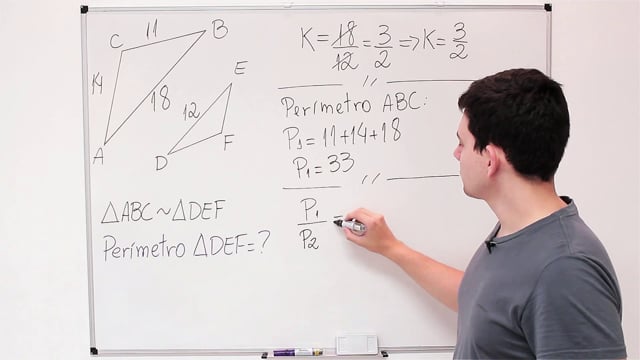 C 11 B
14 18
A
E
12
F
D
△ABC~△DEF
Perímetro △DEF=?
K=18/12=3/2=>K=3/2
Perímetro ABC:
P₁=11+14+18
P₁=33
P₁/P₂=